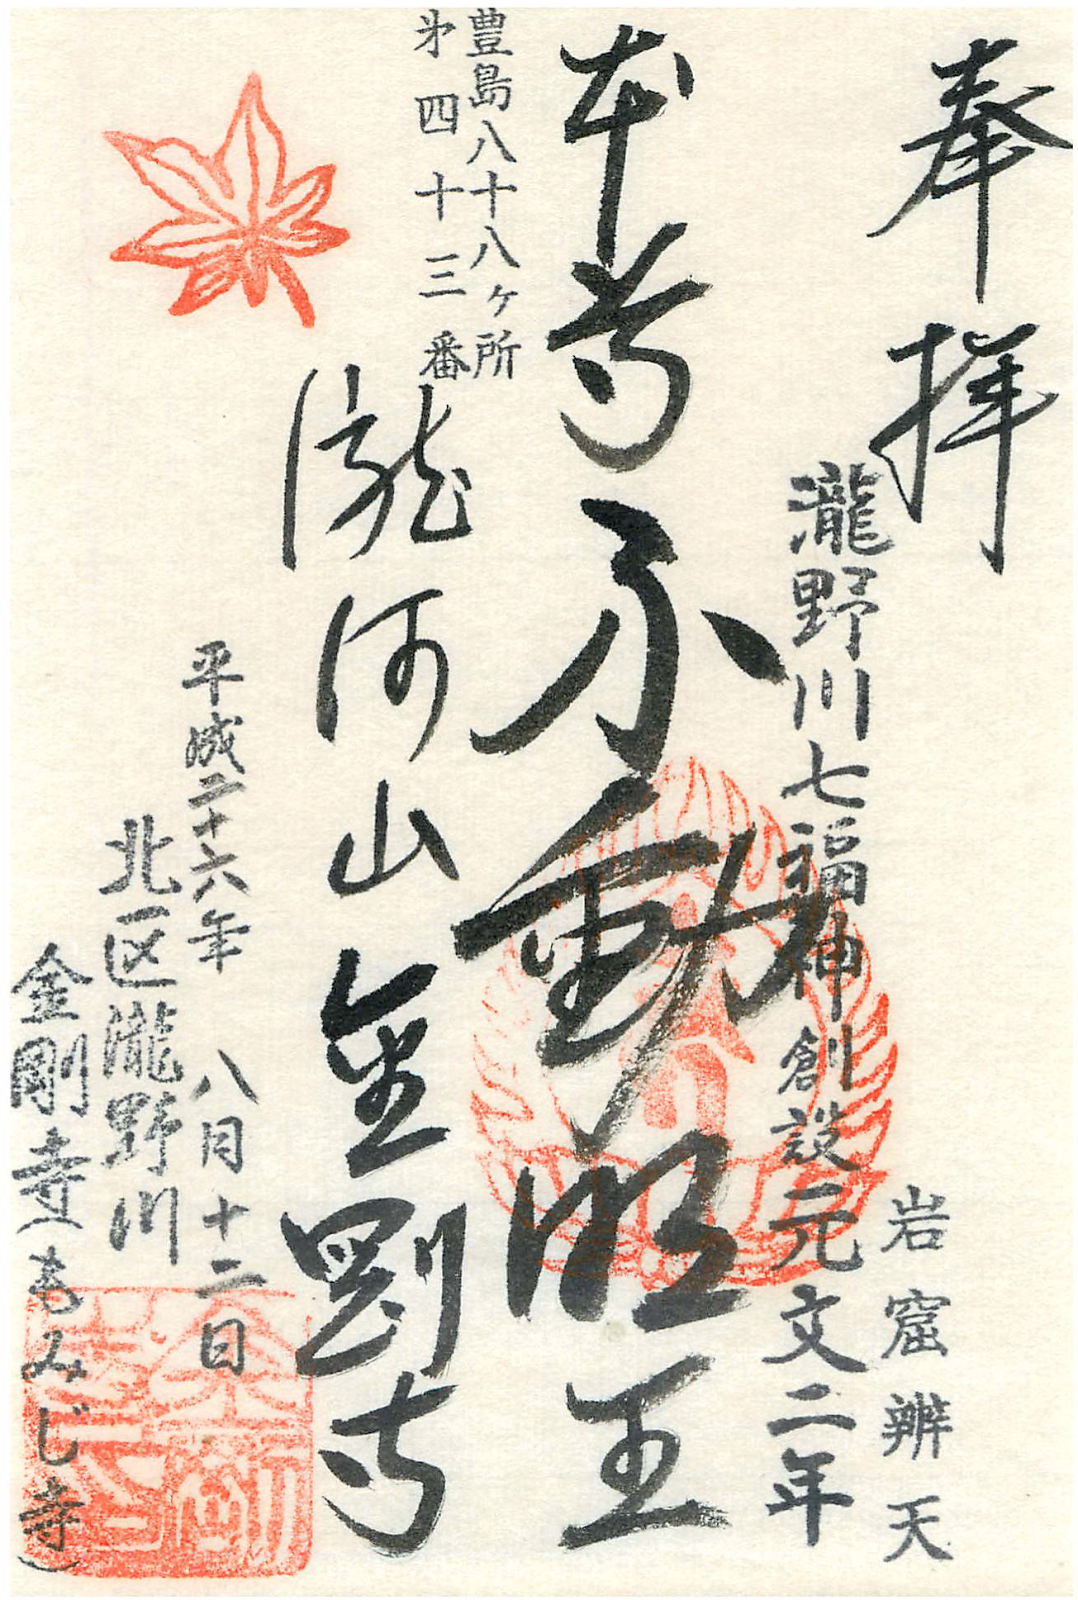 奉拝
岩窟辨天
瀧野川七福神創設元文二年
本尊不動明王
豊島八十八ヶ所
第四十三番
瀧河山金剛寺
平成二十六年 八月十二日
北区瀧野川
金剛寺(もみじ寺)
金剛
寺印